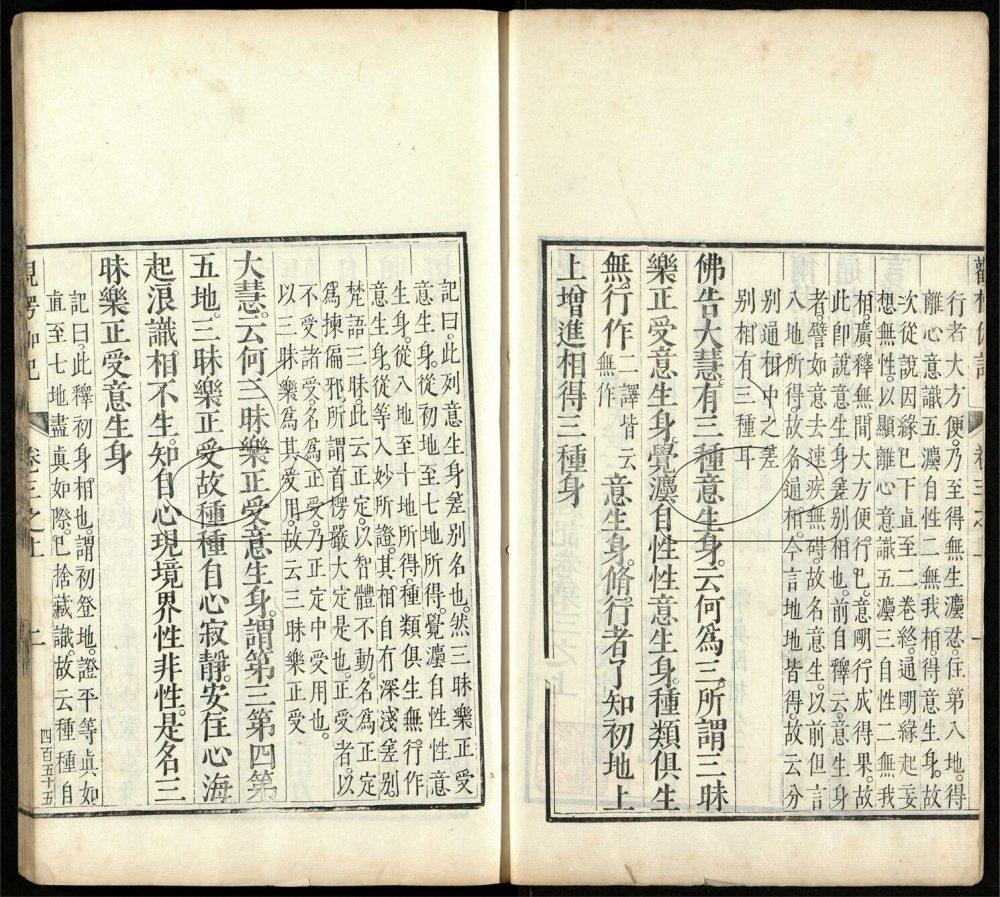 觀楞伽記
卷三之上
一
行者大方便。乃至得無生灋忍。住第八地。得
離心意識五灋自性二無我相。得意生身。故
次從說因緣已下直至二卷終。通明緣起妄
想無性。以顯離心意識五灋三自性二無我
相。廣釋無間大方便行已。意明行成得果。故
此卽說意生身差別相也。前自釋云。意生身
者。譬如意去速疾無碍。故名意生。以前但言
八地所得。故名通相。今言地地皆得。故云分
別通相中之差
別相有三種耳
佛告大慧。有三種意生身。云何爲三。所謂三昧
樂正受意生身。覺灋自性性意生身。種類俱生
無行作二譯皆云無作意生身。修行者了知初地上
上增進相得三種身
記曰。此列意生身差別名也。然三昧樂正受
意生身。從初地至七地所得。覺灋自性性意
生身。從八地至十地所得。種類俱生無行作
意生身。從等入妙所證。其相自有深淺差別
梵語三昧。此云正定。以智體不動。名爲正定
爲揀偏邪。所謂首楞嚴大定是也。正受者。以
不受諸受。名爲正受。乃正定中受用也。
以三昧樂爲其受用。故云三昧樂正受
大慧。云何三昧樂正受意生身。謂第三第四第
五地。三昧樂正受故。種種自心寂靜。安住心海
起浪識相不生。知自心現境界性非性。是名三
昧樂正受意生身
記曰。此釋初身相也。謂初登地。證平等眞如
直至七地盡眞如際。已捨藏識。故云種種自
四百五十五
觀楞伽記
卷三之上
二